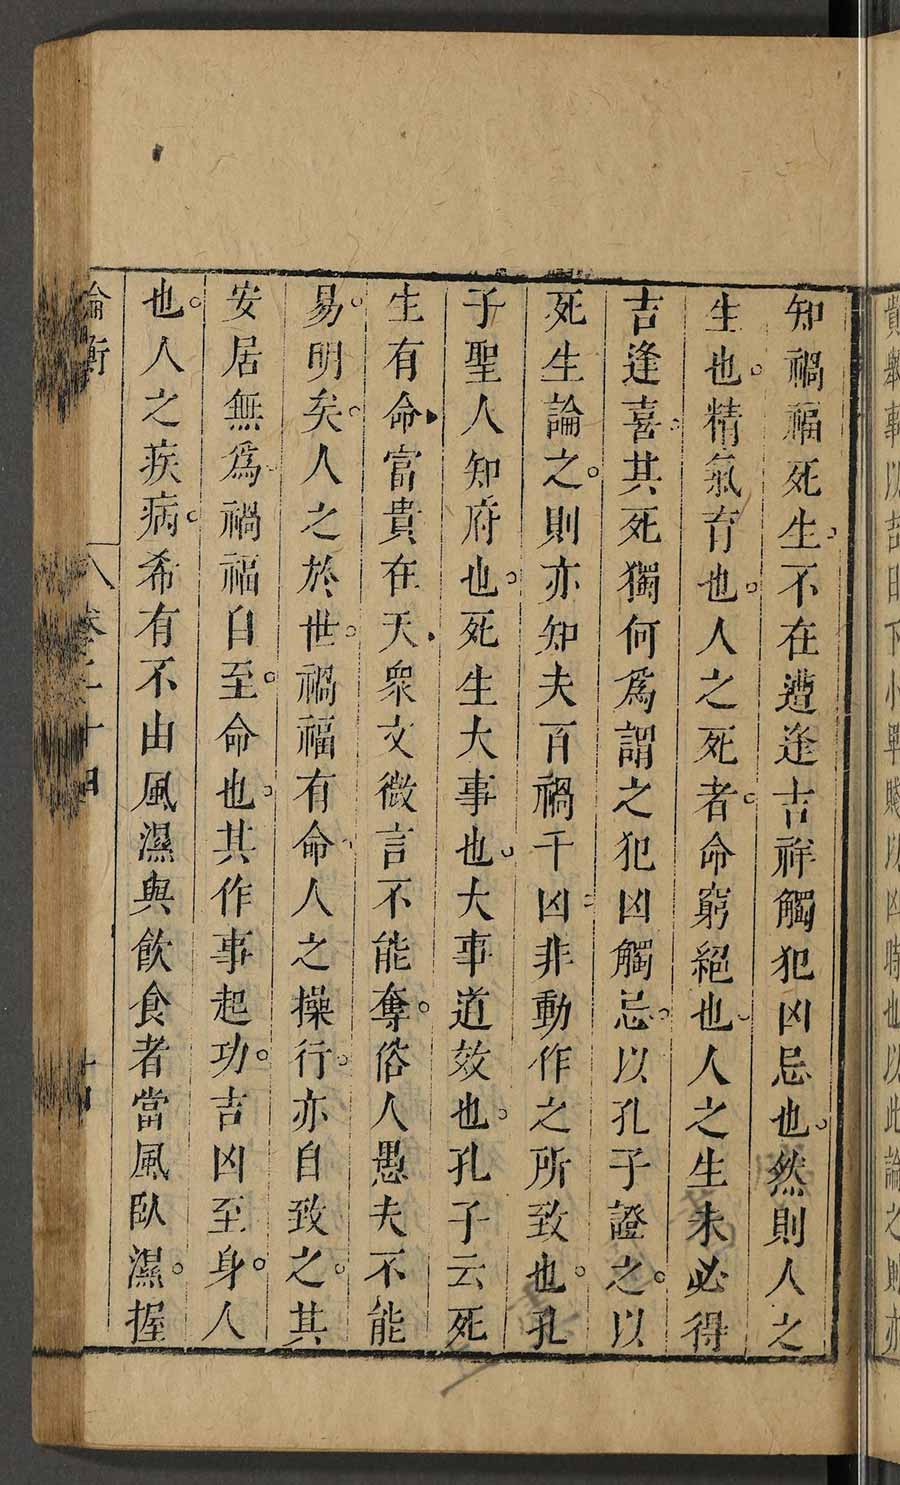 貴舉事以吉日下小卑賤以凶時也以此論之則亦
知禍福死生不在遭逢吉祥觸犯凶忌也然則人之
生也精氣育也人之死者命窮絕也人之生未必得
吉逢喜其死獨何爲謂之犯凶觸忌以孔子證之以
死生論之則亦知夫百禍千凶非動作之所致也孔
子聖人知府也死生大事也大事道效也孔子云死
生有命富貴在天衆文微言不能奪俗人愚夫不能
易明矣人之於世禍福有命人之操行亦自致之其
安居無爲禍福自至命也其作事起功吉凶至身人
也人之疾病希有不由風濕與飲食者當風臥濕握
論衡 卷之二十四